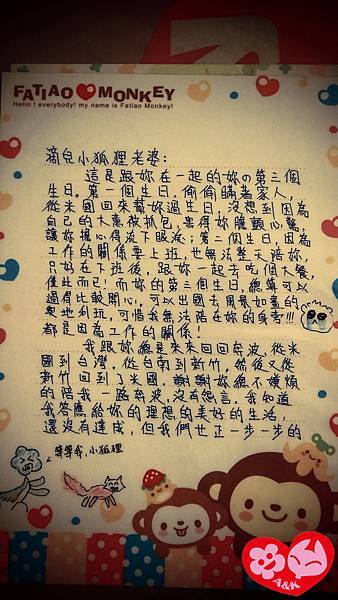 FATIAO MONKEY
Hello ! everybody! my name is Fatiao Monkey!
滴兒小狐狸老婆:
這是跟妳在一起的妳の第三個
生日。第一個生日,偷偷瞞著家人,
從米國回來幫妳過生日,沒想到因為
自己的大意被抓包,害得妳膽顫心驚,
讓妳擔心得流下眼淚;第二個生日,因為
工作的關係要上班,也無法整天陪妳,
只好在下班後,跟妳一起去吃個大餐,
僅此而已!而妳的第三個生日,總算可以
過得比較開心,可以出國去風景如畫的
奧地利玩,可惜我無法陪在妳的身旁!!!
都是因為工作的關係!
我跟妳總是來來回回奔波,從米
國到台灣,從台南到新竹,然後又從
新竹回到了米國。謝謝妳總不嫌煩
的陪我一路奔波,沒有怨言。我知道
我答應給妳的理想的美好的生活,
還沒有達成,但我們也正一步一步的
等等我,小狐狸
A&K